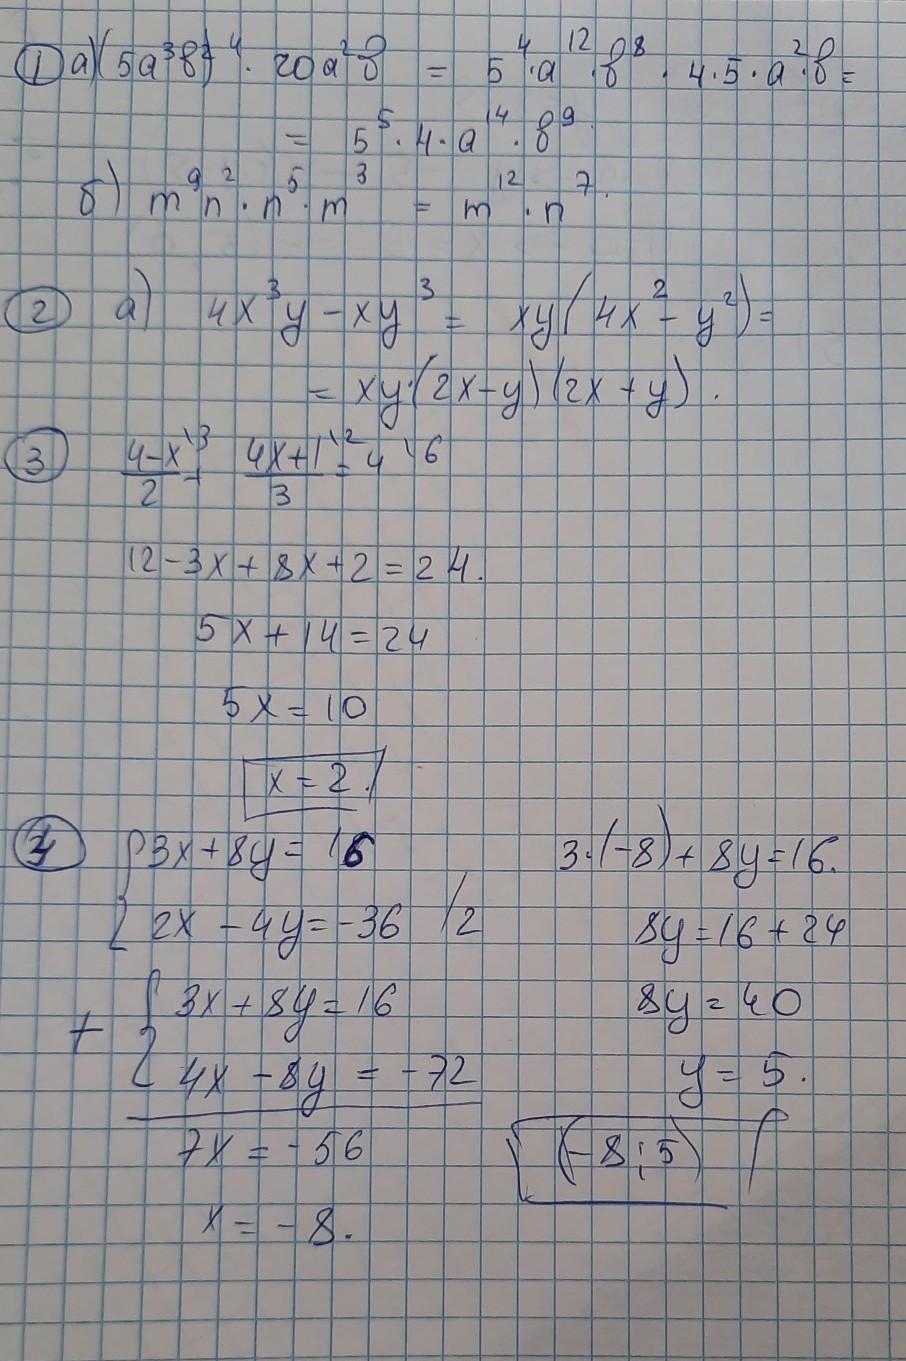 ① а) (5a³b²)⁴ · 20a²b = 5⁴ · a¹² · b⁸ · 4 · 5 · a² · b =
= 5⁵ · 4 · a¹⁴ · b⁹.
б) m⁹n² · n⁵ · m³ = m¹² · n⁷.
② а) 4x³y - xy³ = xy(4x² - y²) =
= xy · (2x - y)(2x + y).
③ (4-x)/2 \3 + (4x+1)/3 \2 = 4 \6
12 - 3x + 8x + 2 = 24.
5x + 14 = 24
5x = 10
x = 2.
④ { 3x + 8y = 16
2x - 4y = -36 /2
+ { 3x + 8y = 16
4x - 8y = -72
7x = -56
x = -8.
3 · (-8) + 8y = 16.
8y = 16 + 24
8y = 40
y = 5.
(-8; 5)